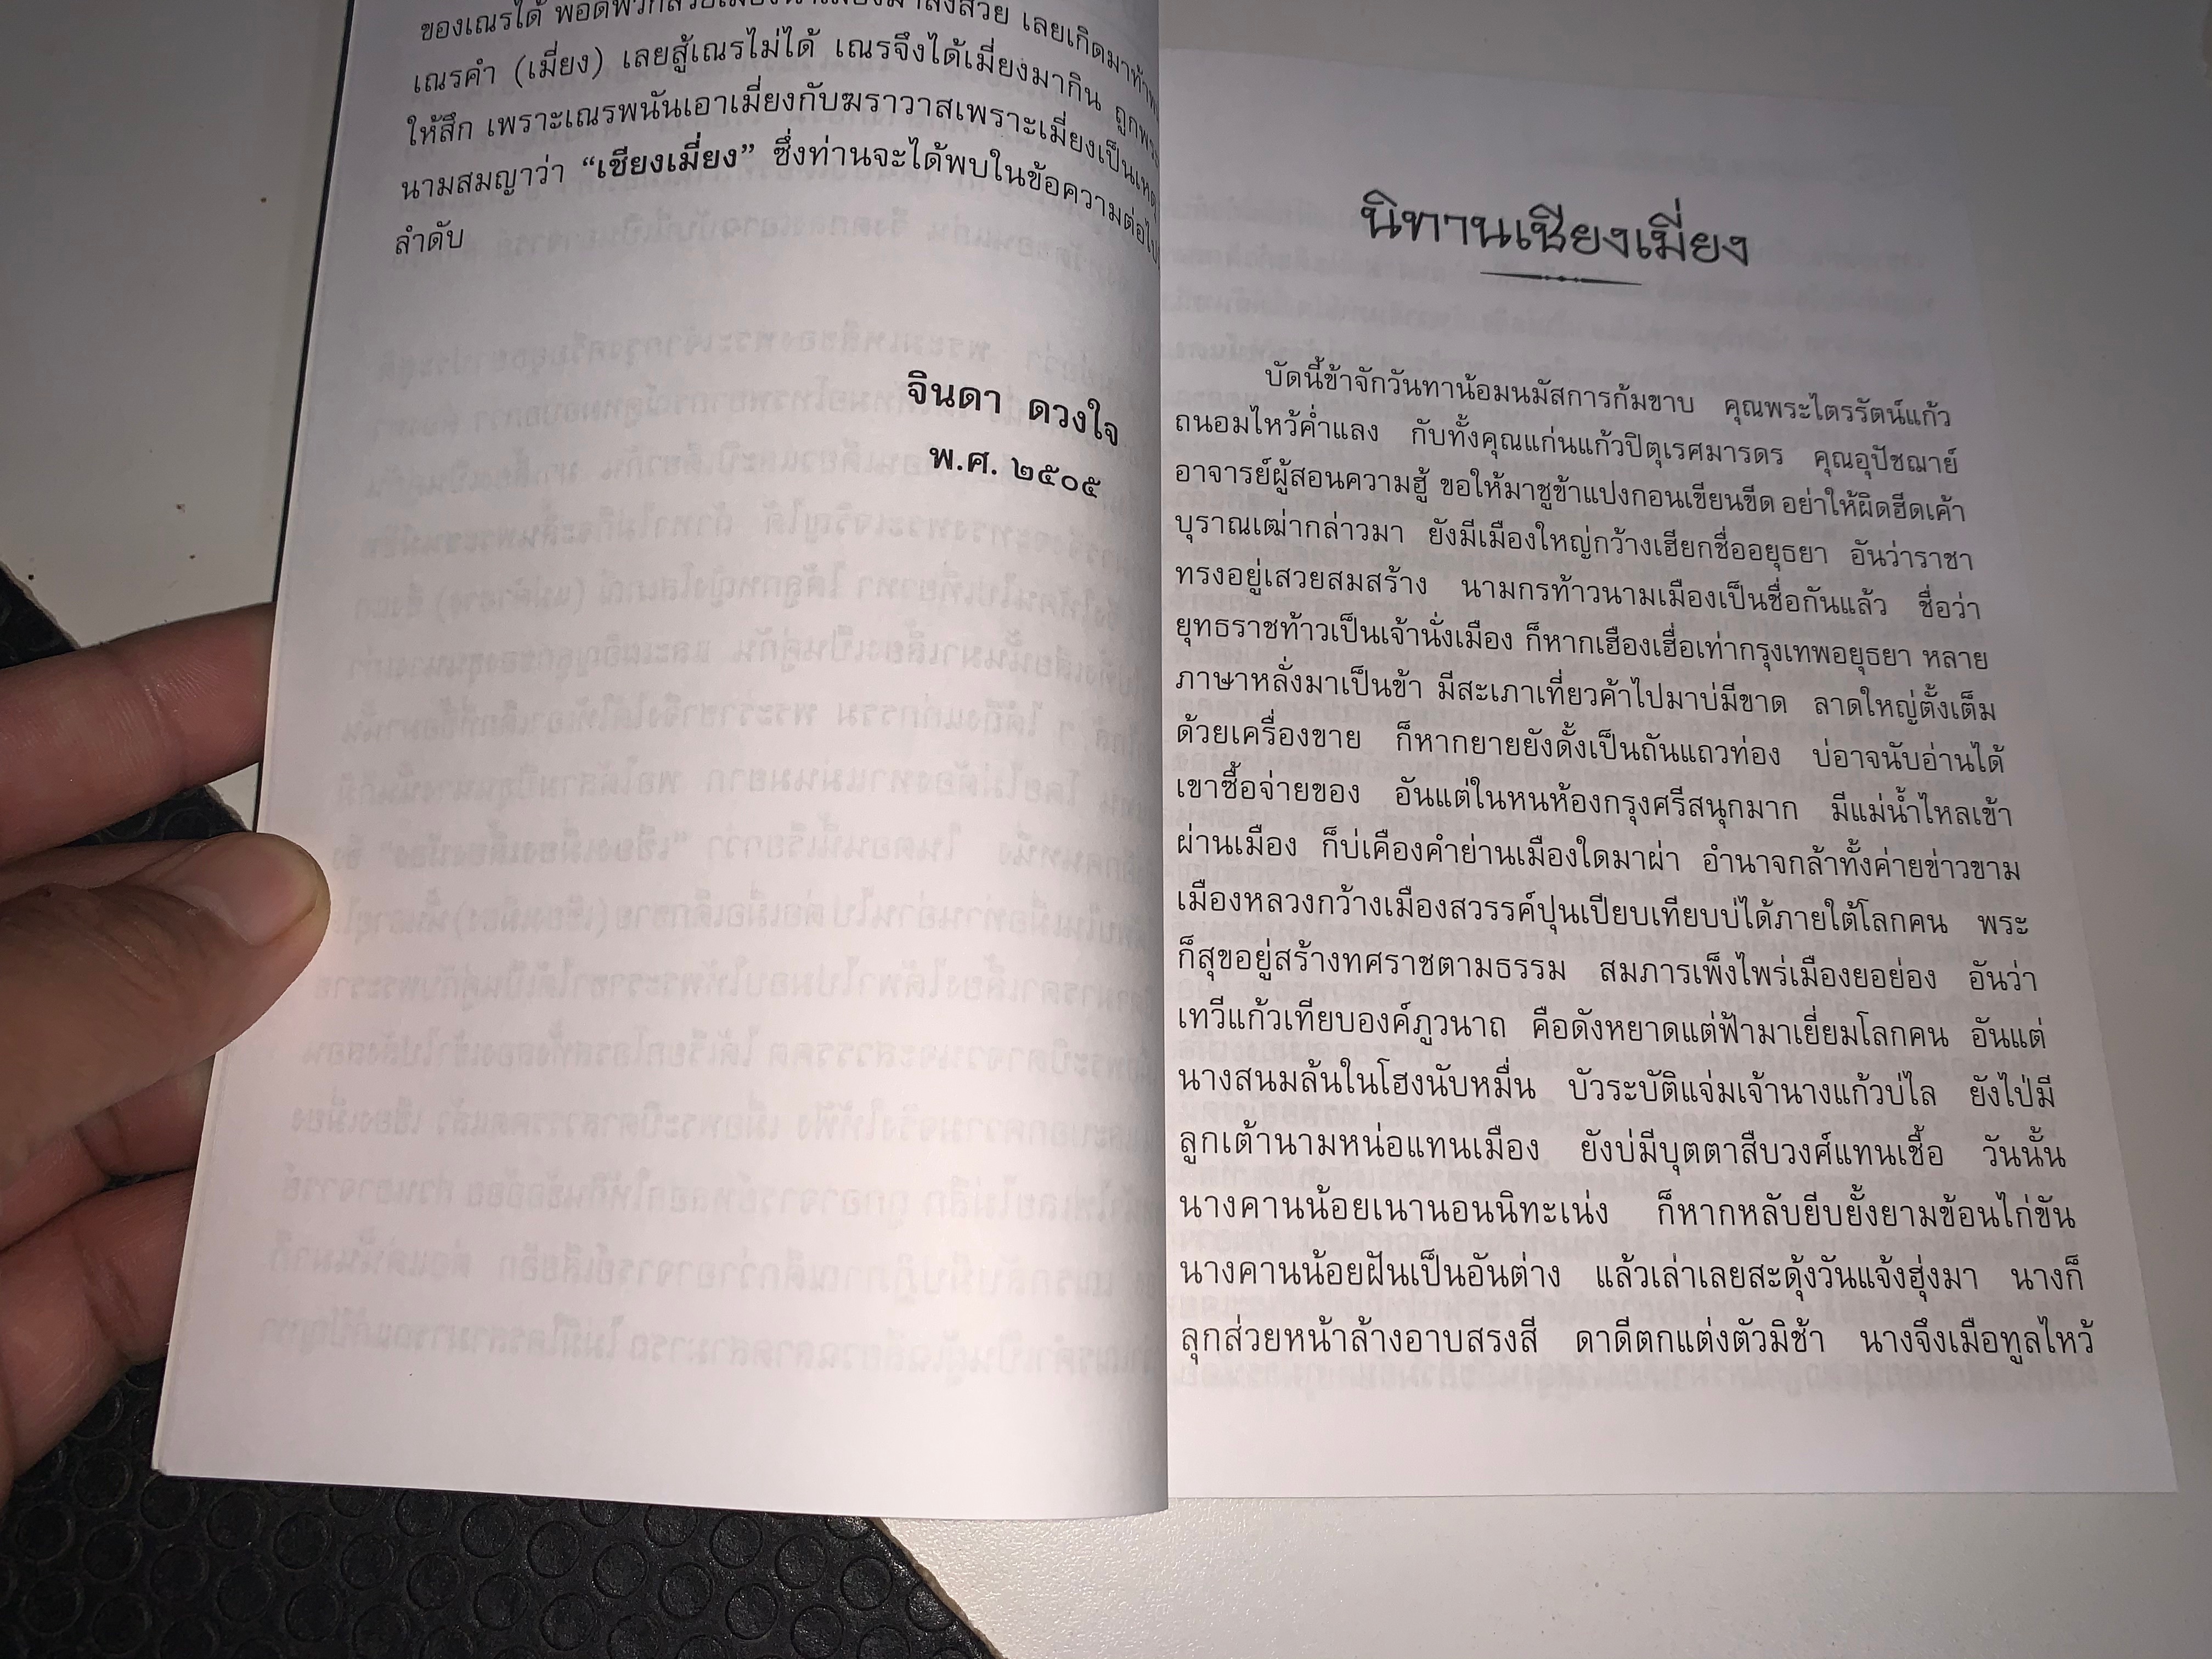 ของเณรได้
เณรคำ (เมี่ยง) เลยสู้เณรไม่ได้ เณรจึงได้เมี่ยงมากิน
ให้สึก เพราะเณรพนันเอาเมี่ยงกับฆราวาสเพราะเมี่ยงเป็นเหตุ
นามสมญาว่า “เชียงเมี่ยง” ซึ่งท่านจะได้พบในข้อความต่อไป
ลำดับ
จินดา ดวงใจ
พ.ศ. ๒๕๐๕
นิทานเชียงเมี่ยง
บัดนี้ข้าจักวันทาน้อมนมัสการก้มขาบ คุณพระไตรรัตน์แก้ว
ถนอมไหว้ค่ำแลง กับทั้งคุณแก่นแก้วปิตุเรศมารดร คุณอุปัชฌาย์
อาจารย์ผู้สอนความฮู้ ขอให้มาชูข้าแปงกอนเขียนขีด อย่าให้ผิดฮีดเค้า
บุราณเฒ่ากล่าวมา ยังมีเมืองใหญ่กว้างเฮียกชื่ออยุธยา อันว่าราชา
ทรงอยู่เสวยสมสร้าง นามกรท้าวนามเมืองเป็นชื่อกันแล้ว ชื่อว่า
ยุทธราชท้าวเป็นเจ้านั่งเมือง ก็หากเฮืองเฮื่อเท่ากรุงเทพอยุธยา หลาย
ภาษาหลั่งมาเป็นข้า มีสะเภาเที่ยวค้าไปมาบ่มีขาด ลาดใหญ่ตั้งเต็ม
ด้วยเครื่องขาย ก็หากยายยังดั้งเป็นถันแถวท่อง บ่อาจนับอ่านได้
เขาซื้อจ่ายของ อันแต่ในหนห้องกรุงศรีสนุกมาก มีแม่น้ำไหลเข้า
ผ่านเมือง ก็บ่เคืองคำย่านเมืองใดมาผ่า อำนาจกล้าทั้งค่ายข่าวขาม
เมืองหลวงกว้างเมืองสวรรค์ปุนเปียบเทียบบ่ได้ภายใต้โลกคน พระ
ก็สุขอยู่สร้างทศราชตามธรรม สมภารเพ็งไพร่เมืองยอย่อง อันว่า
เทวีแก้วเทียบองค์ภูวนาถ คือดังหยาดแต่ฟ้ามาเยี่ยมโลกคน อันแต่
นางสนมล้นในโฮงนับหมื่น บัวระบัติแจ่มเจ้านางแก้วบ่ไล ยังไป่มี
ลูกเต้านามหน่อแทนเมือง ยังบ่มีบุตตาสืบวงศ์แทนเชื้อ วันนั้น
นางคานน้อยเนานอนนิทะเน่ง ก็หากหลับยีบยั้งยามข้อนไก่ขัน
นางคานน้อยฝันเป็นอันต่าง แล้วเล่าเลยสะดุ้งวันแจ้งฮุ่งมา นางก็
ลุกส่วยหน้าล้างอาบสรงสี ดาดีตกแต่งตัวมิช้า นางจึงเมือทูลไหว้